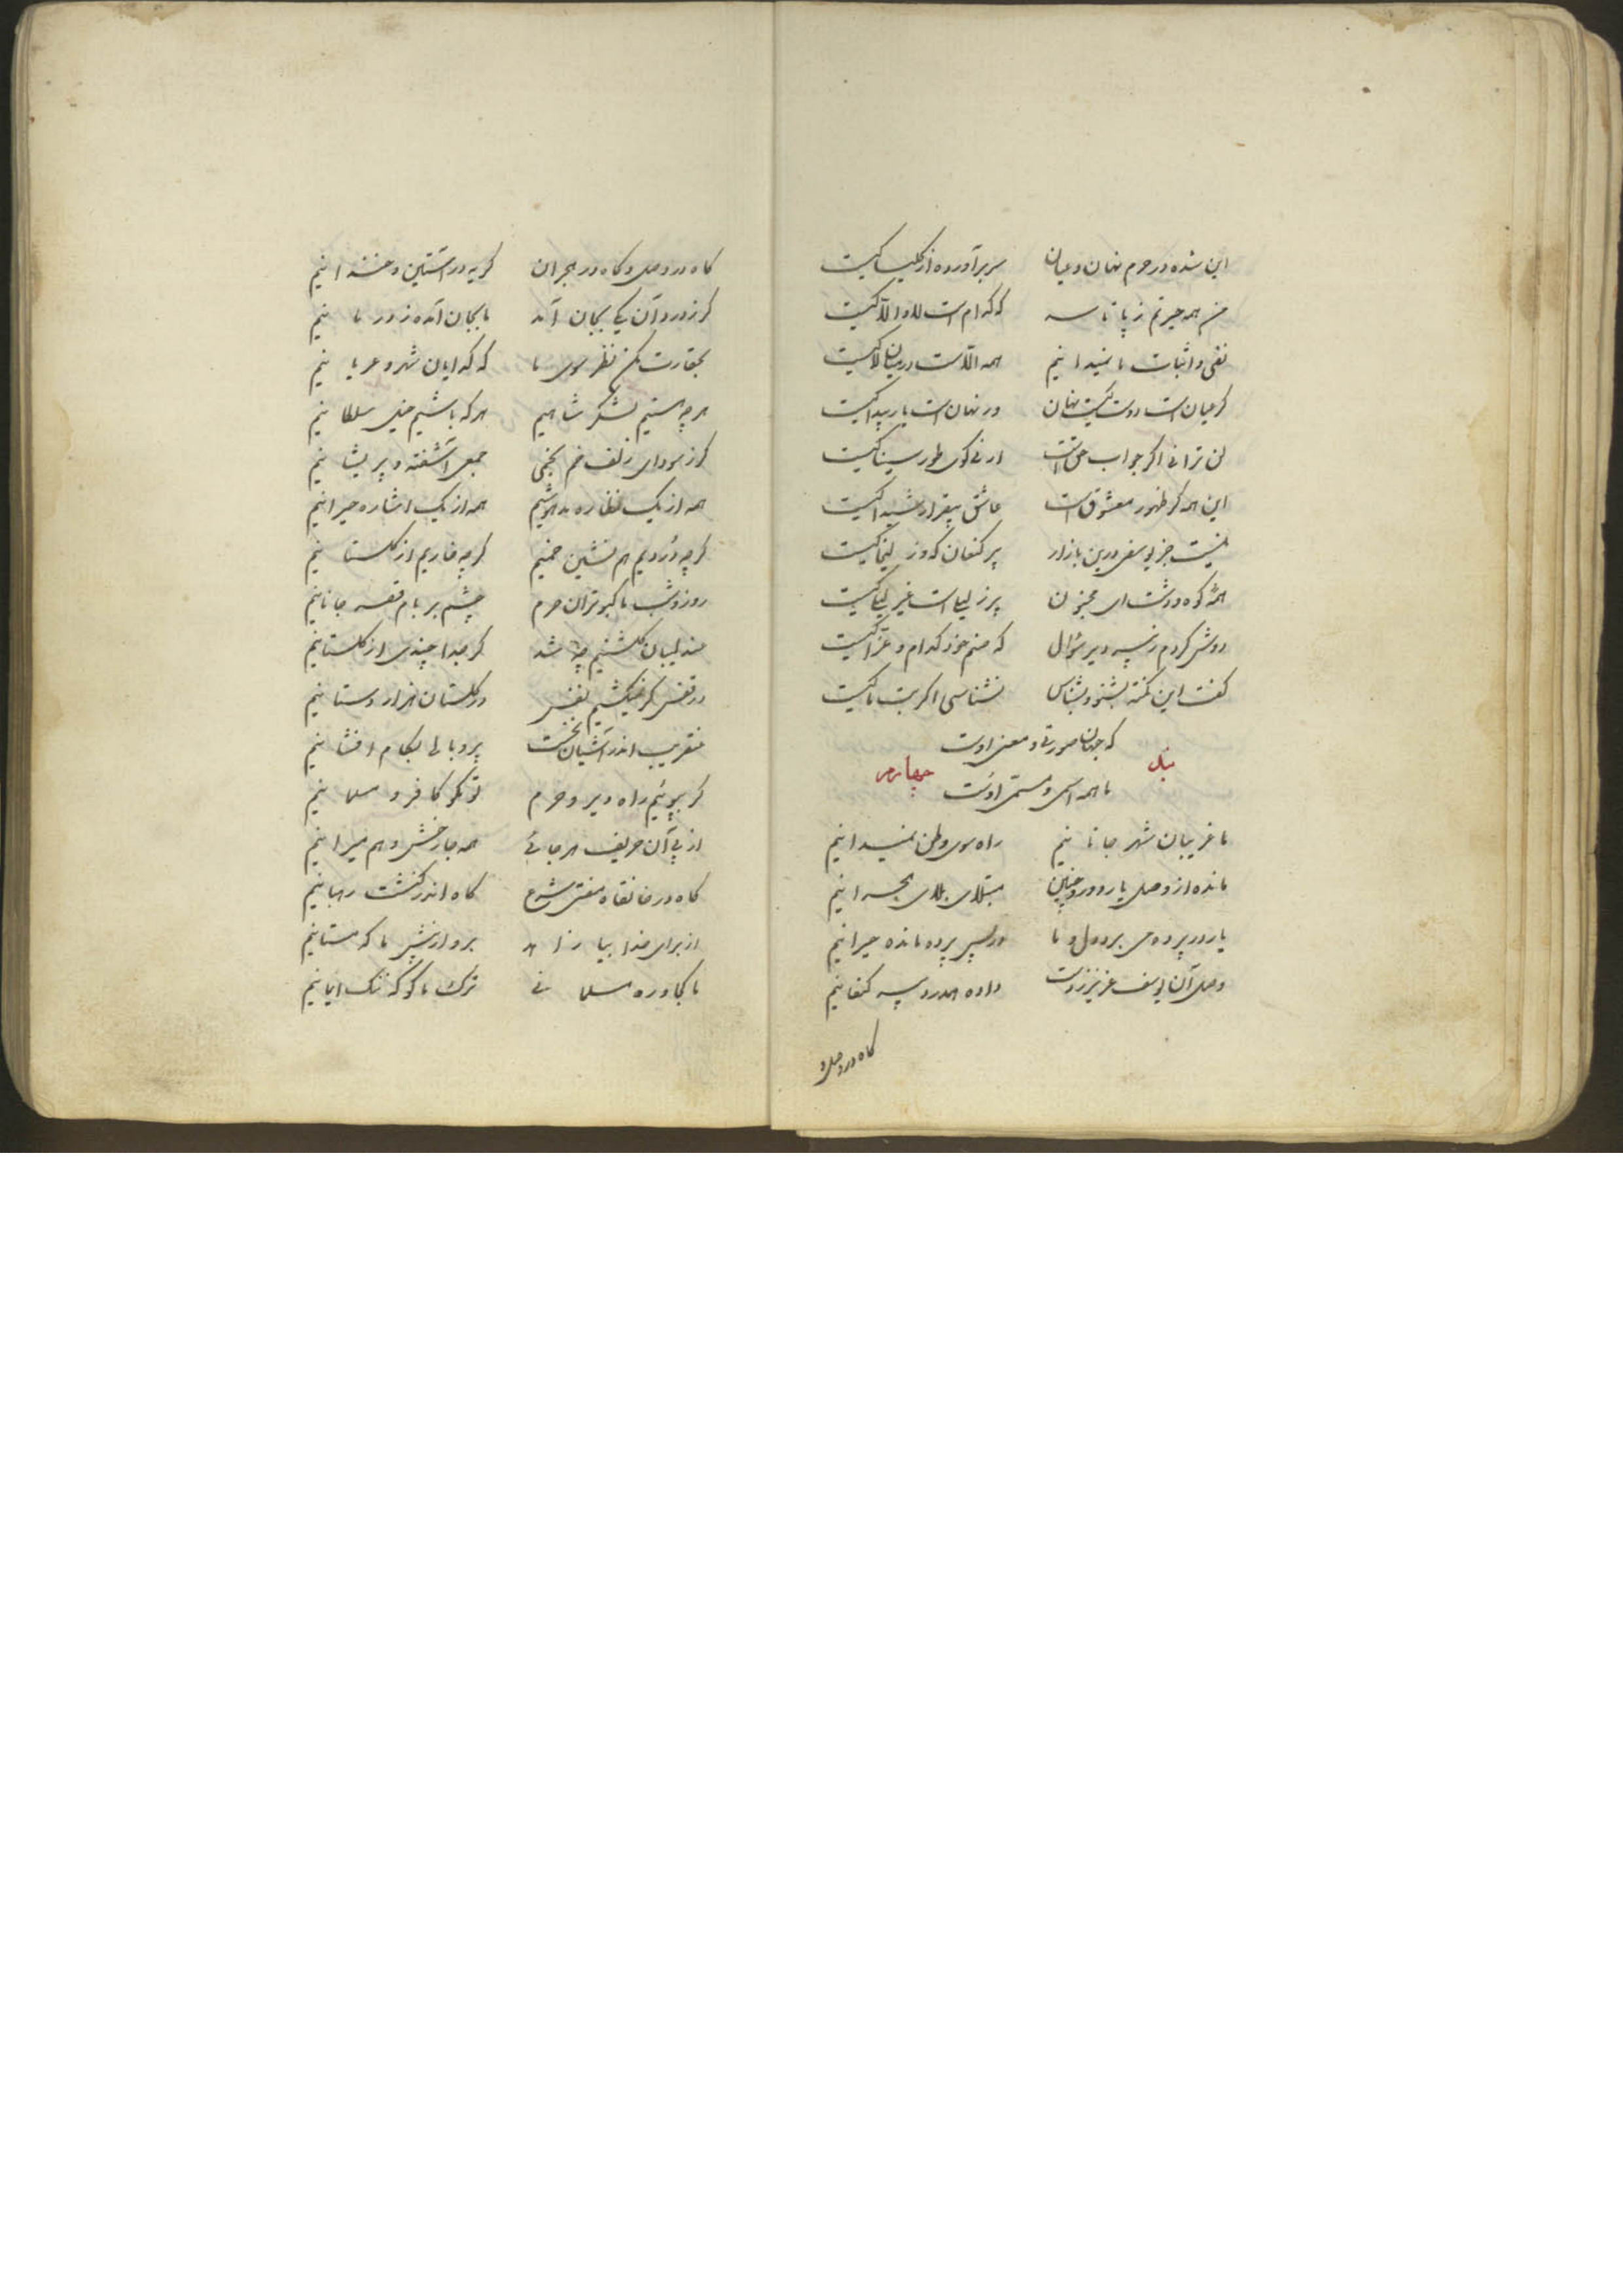 این شده در حرم نهان و عیان سر برآورده از کلیسا کیست
من همه حیرتم ز پا تا سر که کدام است لا و الا کیست
نفی و اثبات ما نمیدانیم همه الاست در میان لا کیست
گر عیان است دوست کیست نهان ور نهان است یار پیدا کیست
لن ترانی اگر جواب حق است ارنی گوی طور سینا کیست
این همه گر ظهور معشوق است عاشق بیقرار شیدا کیست
نیست جز یوسفی درین بازار پیر کنعان که و زلیخا کیست
همه کوه و دشت ای مجنون پر ز لیلی است غیر لیلی کیست
دوش کردم ز پیر دیر سؤال که صنم خود کدام و عزا کیست
گفت این نکته بشنو و بشناس نشناسی اگر بت ما کیست
که جهان صورت و معنی اوست
بند چهارم
با همه اسم و مسمی اوست
ما غریبان شهر جانانیم راه سوی وطن نمیدانیم
مانده از وصل یار دور چنین مبتلای بلای هجرانیم
یار در پرده می برد دل و ما در پس پرده مانده حیرانیم
وصل آن یوسف عزیز ز دست داده همدرد پیر کنعانیم
گاه در وصل و
گاه در وصل و گاه در هجران گریه در آستین و خندانیم
گر ز درد آن یکی بجان آمد ما بجان آمده ز درمانیم
بحقارت مکن نظر سوی ما که گدایان شهر و عریانیم
هر چه هستیم لشکر شاهیم هر که باشیم خیل سلطانیم
کز سودای زلف خم بخمی جمعی آشفته و پریشانیم
همه از یک نظاره مدهوشیم همه از یک اشاره حیرانیم
گر چه دردیم هم نشین خمیم گر چه خاریم از گلستانیم
روز و شب ما کبوتران حرم چشم بر بام قصر جانانیم
عندلیبان گلشنیم چه شد گر جدا چندی از گلستانیم
در قفس گر نمیکشیم نفس در گلستان هزار دستانیم
عنقریب اندر آشیان نخست پر و بالی بکام افشانیم
گر بپوئیم راه دیر و حرم تو مگو کافر و مسلمانیم
از پی آن حریف هر جائی همه جا رخش وهم میرانیم
گاه در خانقاه مفتی شرع گاه اندر کنشت رهبانیم
از برای خدا بیا زاهد برو از پیش ما که مستانیم
ما کجا و ره مسلمانی ترک ما گو که ننگ ایمانیم